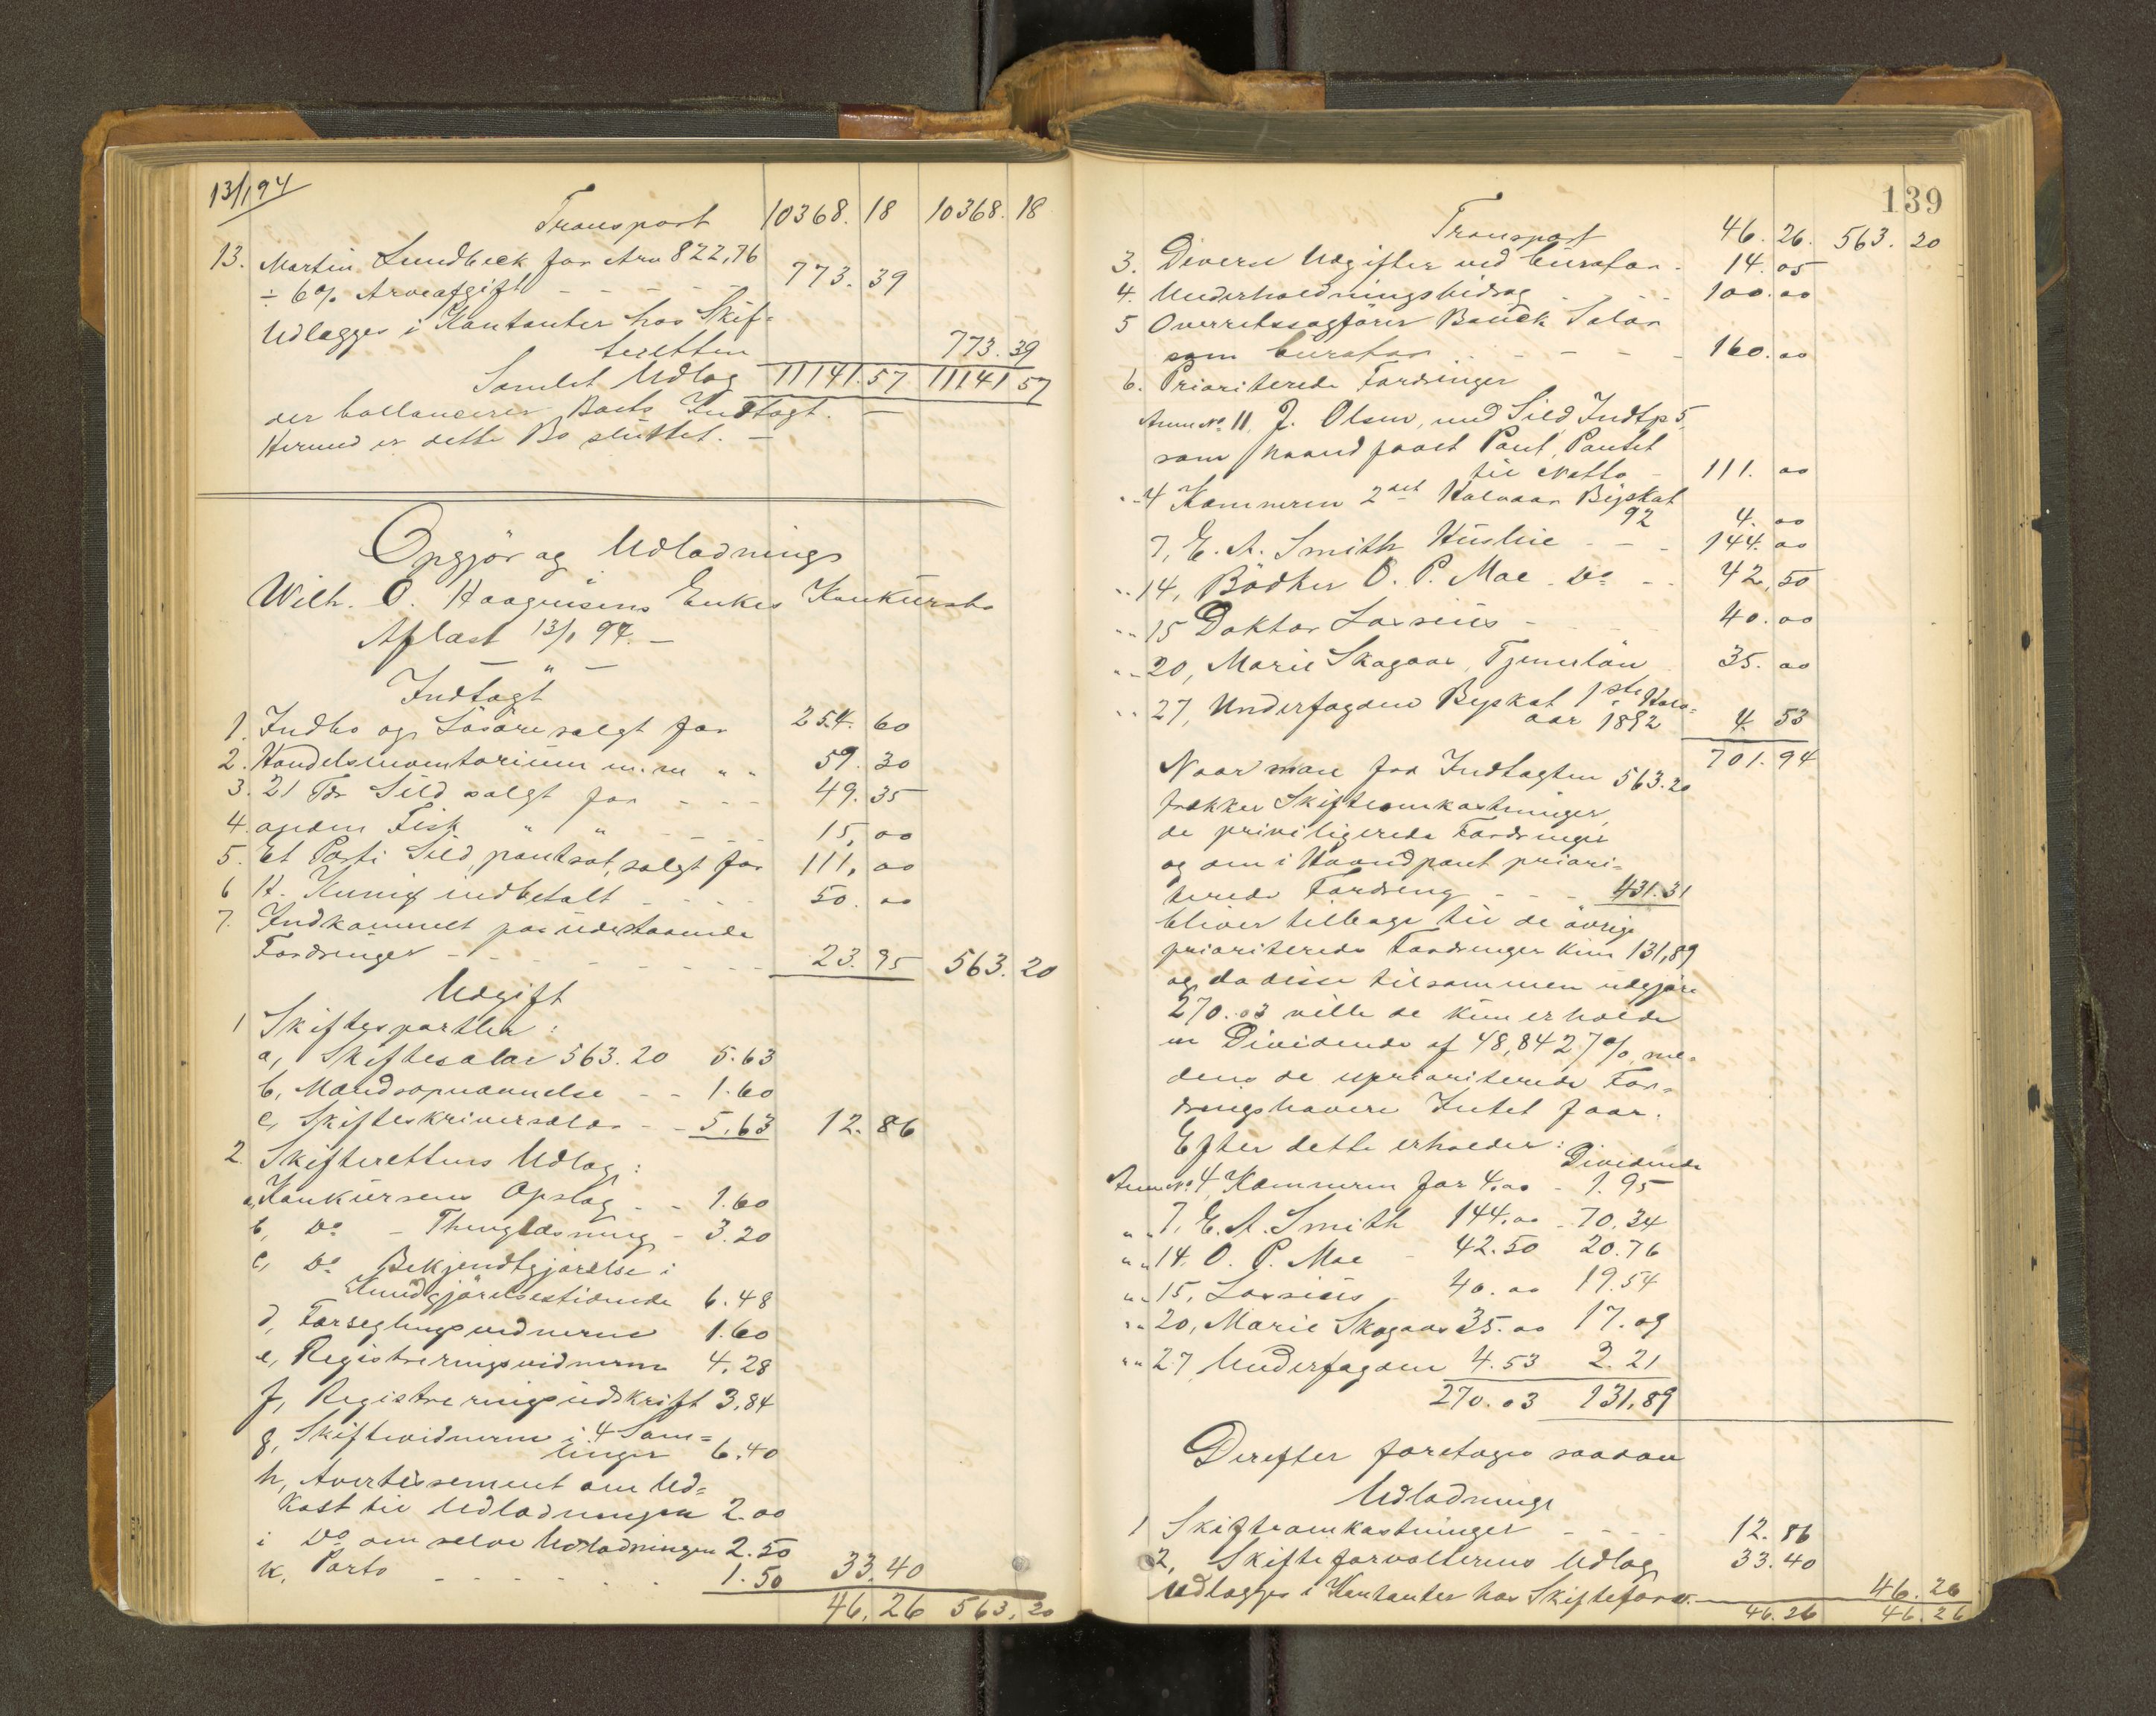 13/1 94
Transport 10368. 18 10368. 18
13. Martin Lundbeck for Arv 822,76
÷ 6% Arveafgift - - - - 773. 39
Udlægges i Kontanter hos Skif-
teretten 773. 39
Samlet Udlæg 11141. 57 11141 57
der ballancerer Boets Indtægt. -
Hermed er dette Bo sluttet. -
Opgjør og Udlodnings
Wilh. O. Haagensens Enkes Konkursbo
Aflæst 13/1 94. -
- " -
Indtægt
1. Indbo og Løsøre solgt for 254. 60
2. Handelsinventarium m. m " " 59. 30
3. 21 Tdr Sild solgt for - - - 49. 35
4. anden Fisk " " - - - 15, 00
5. Et Parti Sild, pantsat, solgt for 111, 00
6 H. Kunig indbetalt - - - - 50. 00
7. Indkommet paa udestaaende
Fordringer - - - - - - 23. 95 563. 20
Udgift
1 Skiftesportler :
a, Skiftesalær 563. 20 5. 63
b, Mandsopnævnelse - - 1. 60
c, Skifteskriversalær - - 5, 63 12. 86
2. Skifterettens Udlæg :
a, Konkursens Opslag - - 1. 60
b, Do - Thinglæsning - 3. 20
c, Do Bekjendtgjørelse i
Kundgjørelsestidende 6. 48
d, Forseglingsvidnerne 1. 60
e, Registreringsvidnerne 4. 28
f, Registreringsudskrift 3, 84
g, Skiftevidnerne i 4 Sam-
linger 6. 40
h, Avertissement om Ud-
kast til Udlodningen 2. 00
i Do om selve Udlodningen 2. 50
k, Porto - - - - - - 1. 50 33. 40
46, 26 563, 20
139
Transport 46. 26. 563. 20
3. Diverse Udgifter ved Curator - 14. 05
4. Underholdningsbidrag - - - 100. 00
5 Overretssagfører Bauck Salær
som Curator - - - - - 160. 00
6. Prioriterede Fordringer
Anm No 11, J. Olsen, med Sild, Indtp 5,
som haandfaaet Pant, Pantet
til Netto - 111. 00
" - 4 Kæmneren 2det Halvaar Byskat
92 4. 00
7, E. A. Smith Husleie - - - 144. 00
" - 14, Bödker O. P. Moe Do - - 42, 50
" - 15 Doktor Lossius - - - 40. 00
" - 20, Marie Skagaas, Tjenerløn 35. 00
" - 27, Underfogden Byskat 1ste Halv-
aar 1892 4. 53
701. 94
Naar man fra Indtægten 563. 20
trækker Skifteomkostninger,
de priviligerede Fordringer
og om i Haandpant priori-
terede Fordring - - - 431. 31
bliver tilbage til de øvrige
prioriterede Fordringer kun 131,89
og da disse tilsammen udgjøre
270. 03 ville de kun erholde
en Dividende af 48,8427%, me-
dens de uprioriterede For-
dringshavere Intet faar.
Efter dette erholder :
Dividende
Anm No 4, Kæmneren for 4,00 - 1. 95
" " 7, E. A. Smith 144,00 - 70. 34
" " 14. O. P. Moe - 42. 50 20. 76
" " 15, Lossius - 40. 00 19. 54
" " 20, Marie Skagaas 35. 00 17. 09
" " 27 Underfogden 4. 53 2. 21
270. 03 131, 89
Derefter foretages saadan
Udlodning
1 Skifteomkostninger - - - - 12. 86
2, Skifteforvalterens Udlæg 33. 40
Udlægges i Kontanter hos Skifteforv. - 46. 26
46. 26 46. 26